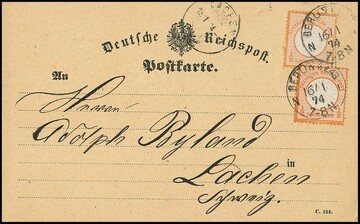 Deutsche Reichspost.
Postkarte.
An
Herrn
Adolph Byland
in
Lachen
Schweiz.
C. 154.
N BERLIN
16/1
74
7-8N
N BERLIN
16/1
74
7-8N